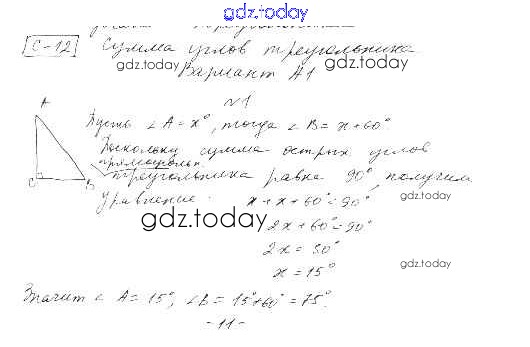 gdz.today
С-12 Сумма углов треугольника
gdz.today gdz.today
Вариант А1
№1
A
Пусть ∠A = x°, тогда ∠B = x+60°
Поскольку сумма острых углов
прямоугольн.
треугольника равна 90°, получим
C B
уравнение: x+x+60°=90°
gdz.today
gdz.today
2x+60°=90°
2x = 30°
x = 15°
gdz.today
Значит ∠A = 15°, ∠B = 15°+60° = 75°.
-11-